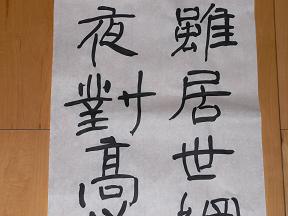 雖居世網
夜對高